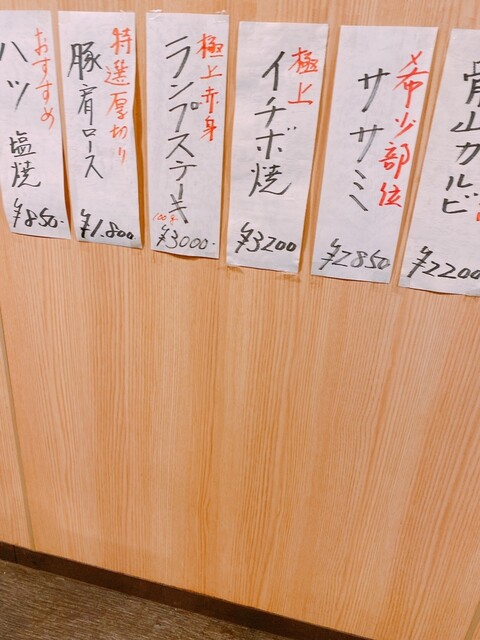 骨山カルビ
¥2200
希少部位
ササミ
¥2850
極上
イチボ焼
¥3200
極上赤身
ランプステーキ
100g
¥3000-
特選厚切り
豚肩ロース
¥1.800
おすすめ
ハツ 塩焼
¥850-